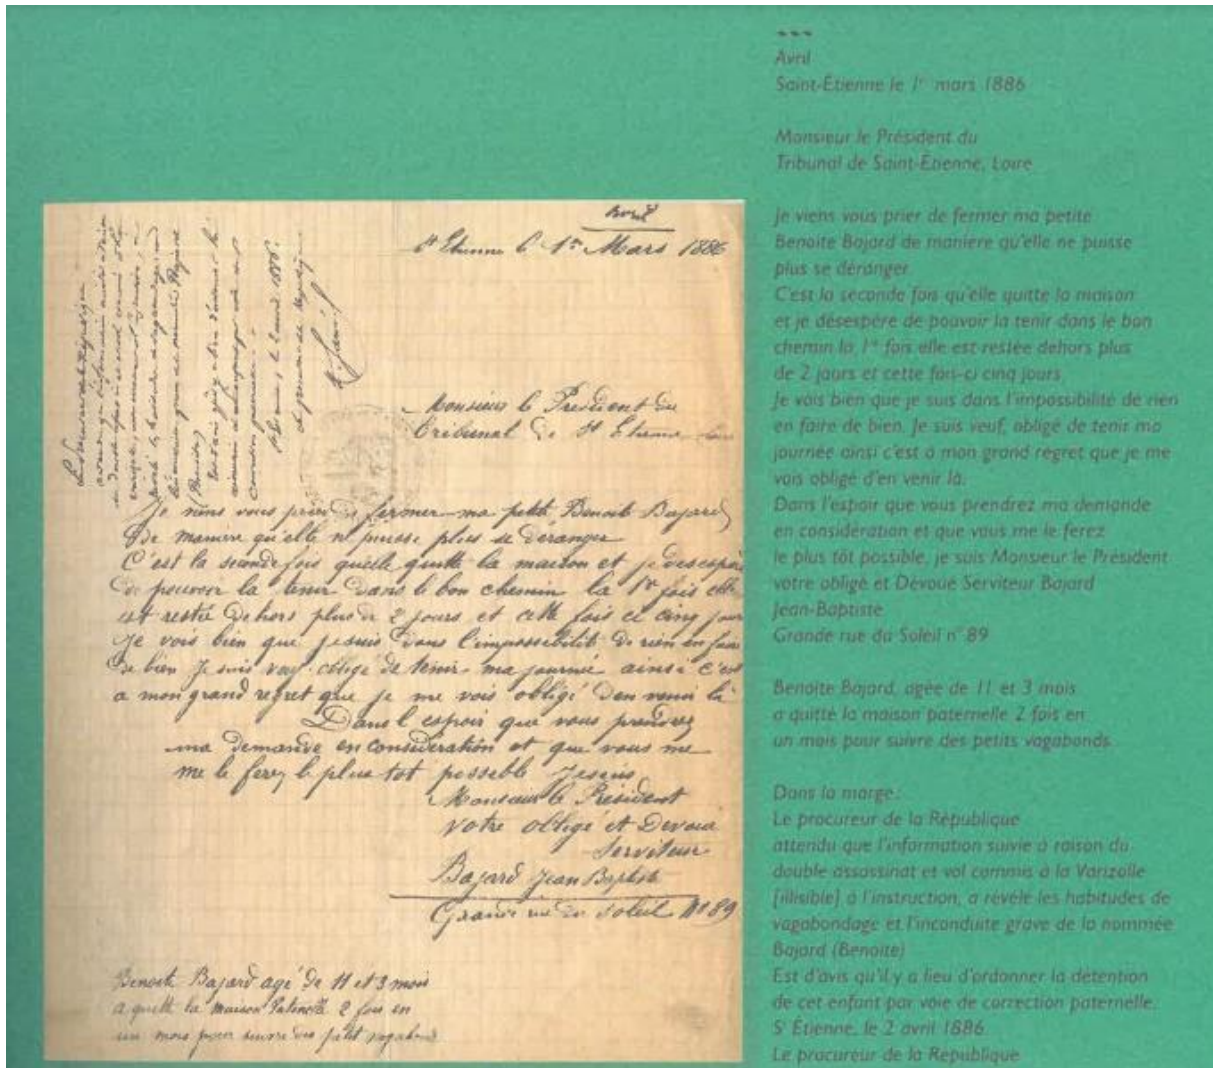 Avril
St Etienne le 1er Mars 1886
Monsieur le President du
Tribunal de St Etienne Loire
Je viens vous prier de fermer ma petite Benoite Bajard
de maniere qu'elle ne puisse plus se déranger
C'est la seconde fois qu'elle quitte la maison et je desespère
de pouvoir la tenir dans le bon chemin la 1re fois elle
est restée dehors plus de 2 jours et cette fois ci cinq jours
Je vois bien que je suis dans l'impossibilité de rien en faire
de bien Je suis veuf obligé de tenir ma journée ainsi c'est
a mon grand regret que je me vois obligé d'en venir là
Dans l'espoir que vous prendrez
ma demande en consideration et que vous me
me le ferez le plus tot possible je suis
Monsieur le President
votre obligé et Devoué
Serviteur
Bajard Jean Baptiste
Grande rue du Soleil N° 89
Benoite Bajard agé de 11 et 3 mois
a quitté la maison Paternelle 2 fois en
un mois pour suivre des petit vagabond
Avril
Saint-Étienne le 1er mars 1886
Monsieur le Président du
Tribunal de Saint-Étienne, Loire
Je viens vous prier de fermer ma petite
Benoite Bajard de maniere qu'elle ne puisse
plus se déranger.
C'est la seconde fois qu'elle quitte la maison
et je désespère de pouvoir la tenir dans le bon
chemin la 1re fois elle est restée dehors plus
de 2 jours et cette fois-ci cinq jours
Je vois bien que je suis dans l'impossibilité de rien
en faire de bien. Je suis veuf, obligé de tenir ma
journée ainsi c'est à mon grand regret que je me
vois obligé d'en venir là.
Dans l'espoir que vous prendrez ma demande
en considération et que vous me le ferez
le plus tôt possible, je suis Monsieur le Président
votre obligé et Dévoué Serviteur Bajard
Jean-Baptiste
Grande rue du Soleil n° 89
Benoîte Bajard, agée de 11 et 3 mois
a quitté la maison paternelle 2 fois en
un mois pour suivre des petits vagabonds
Dans la marge :
Le procureur de la République
attendu que l'information suivie à raison du
double assassinat et vol commis à la Varizolle
[illisible] à l'instruction, a révélé les habitudes de
vagabondage et l'inconduite grave de la nommée
Bajard (Benoite)
Est d'avis qu'il y a lieu d'ordonner la détention
de cet enfant par voie de correction paternelle.
St Étienne, le 2 avril 1886.
Le procureur de la République